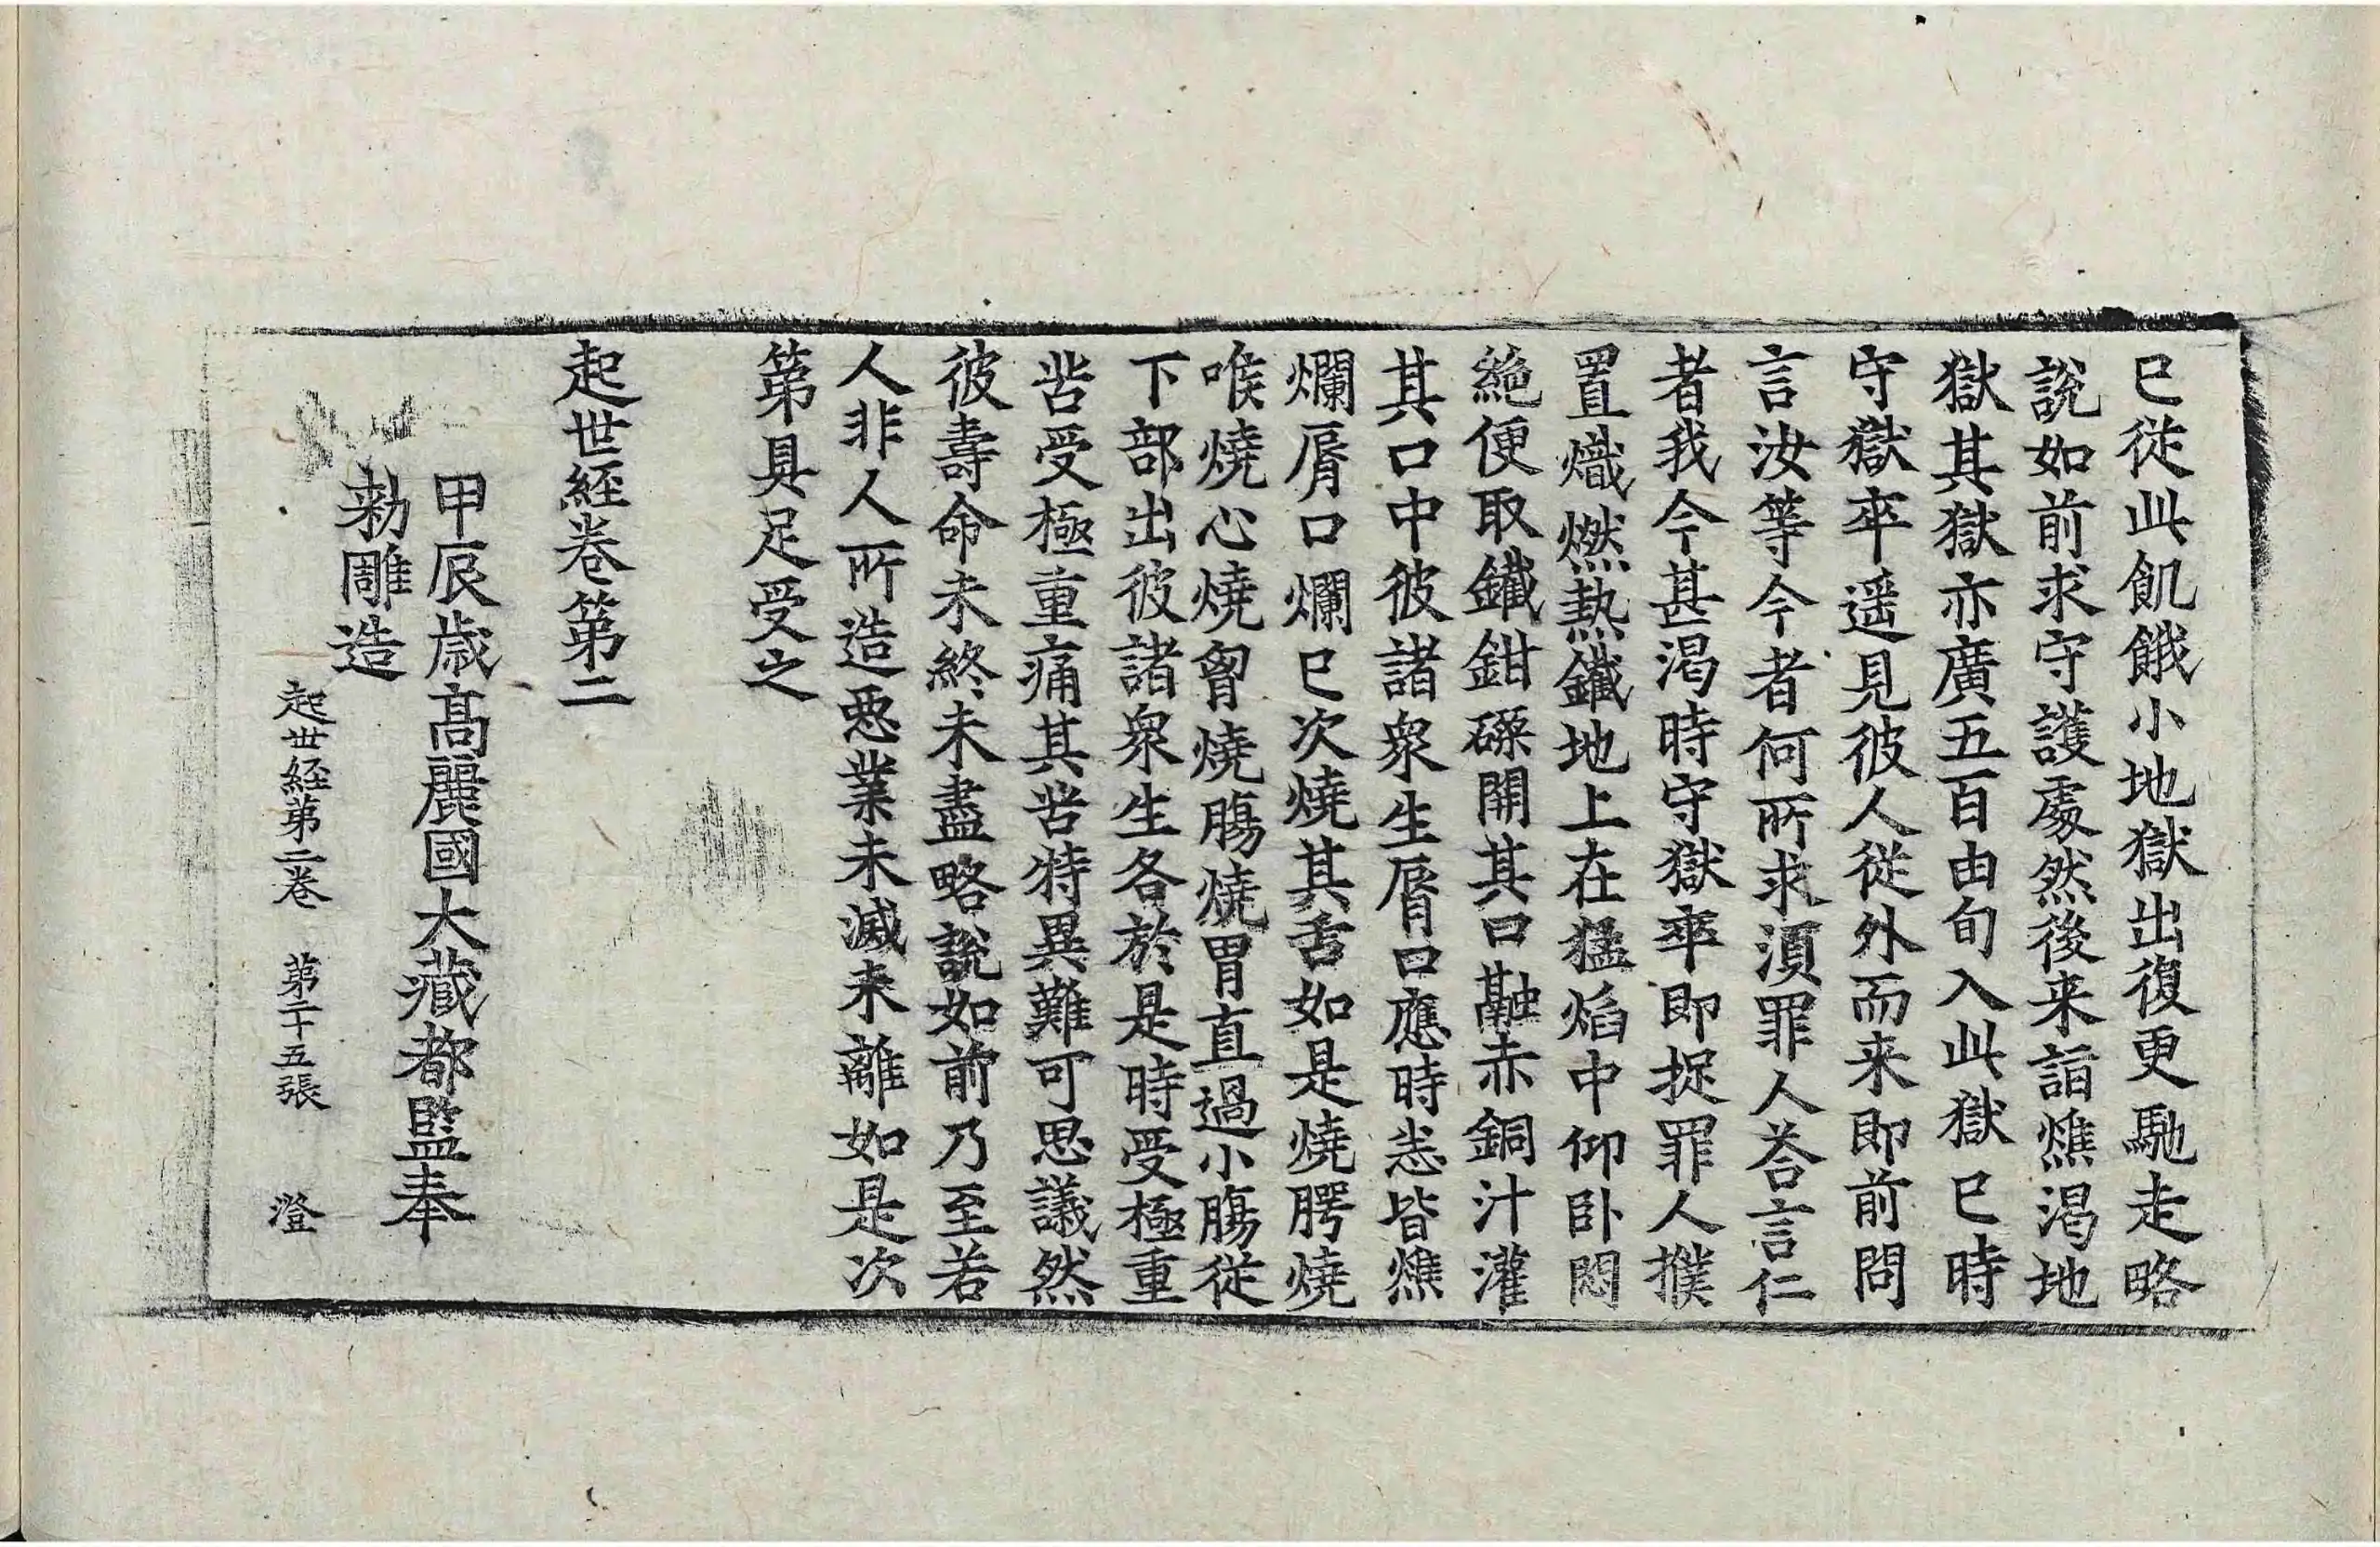 已從此飢餓小地獄出復更馳走略
說如前求守護處然後来詣燋渴地
獄其獄亦廣五百由旬入此獄已時
守獄卒遥見彼人從外而来即前問
言汝等今者何所求湏罪人荅言仁
者我今甚渴時守獄卒即捉罪人撲
置熾燃熱鐵地上在猛焰中仰卧悶
絶便取鐵鉗磔開其口融赤銅汁灌
其口中彼諸衆生脣口應時悉皆燋
爛脣口爛已次燒其舌如是燒腭燒
喉燒心燒胷燒膓燒胃直過小膓從
下部出彼諸衆生各於是時受極重
苦受極重痛其苦特異難可思議然
彼壽命未終未盡略說如前乃至若
人非人所造惡業未滅未離如是次
第具足受之
起世經卷第二
甲辰歲高麗國大藏都監奉
勑雕造
起世経第二卷 第二十五張 澄